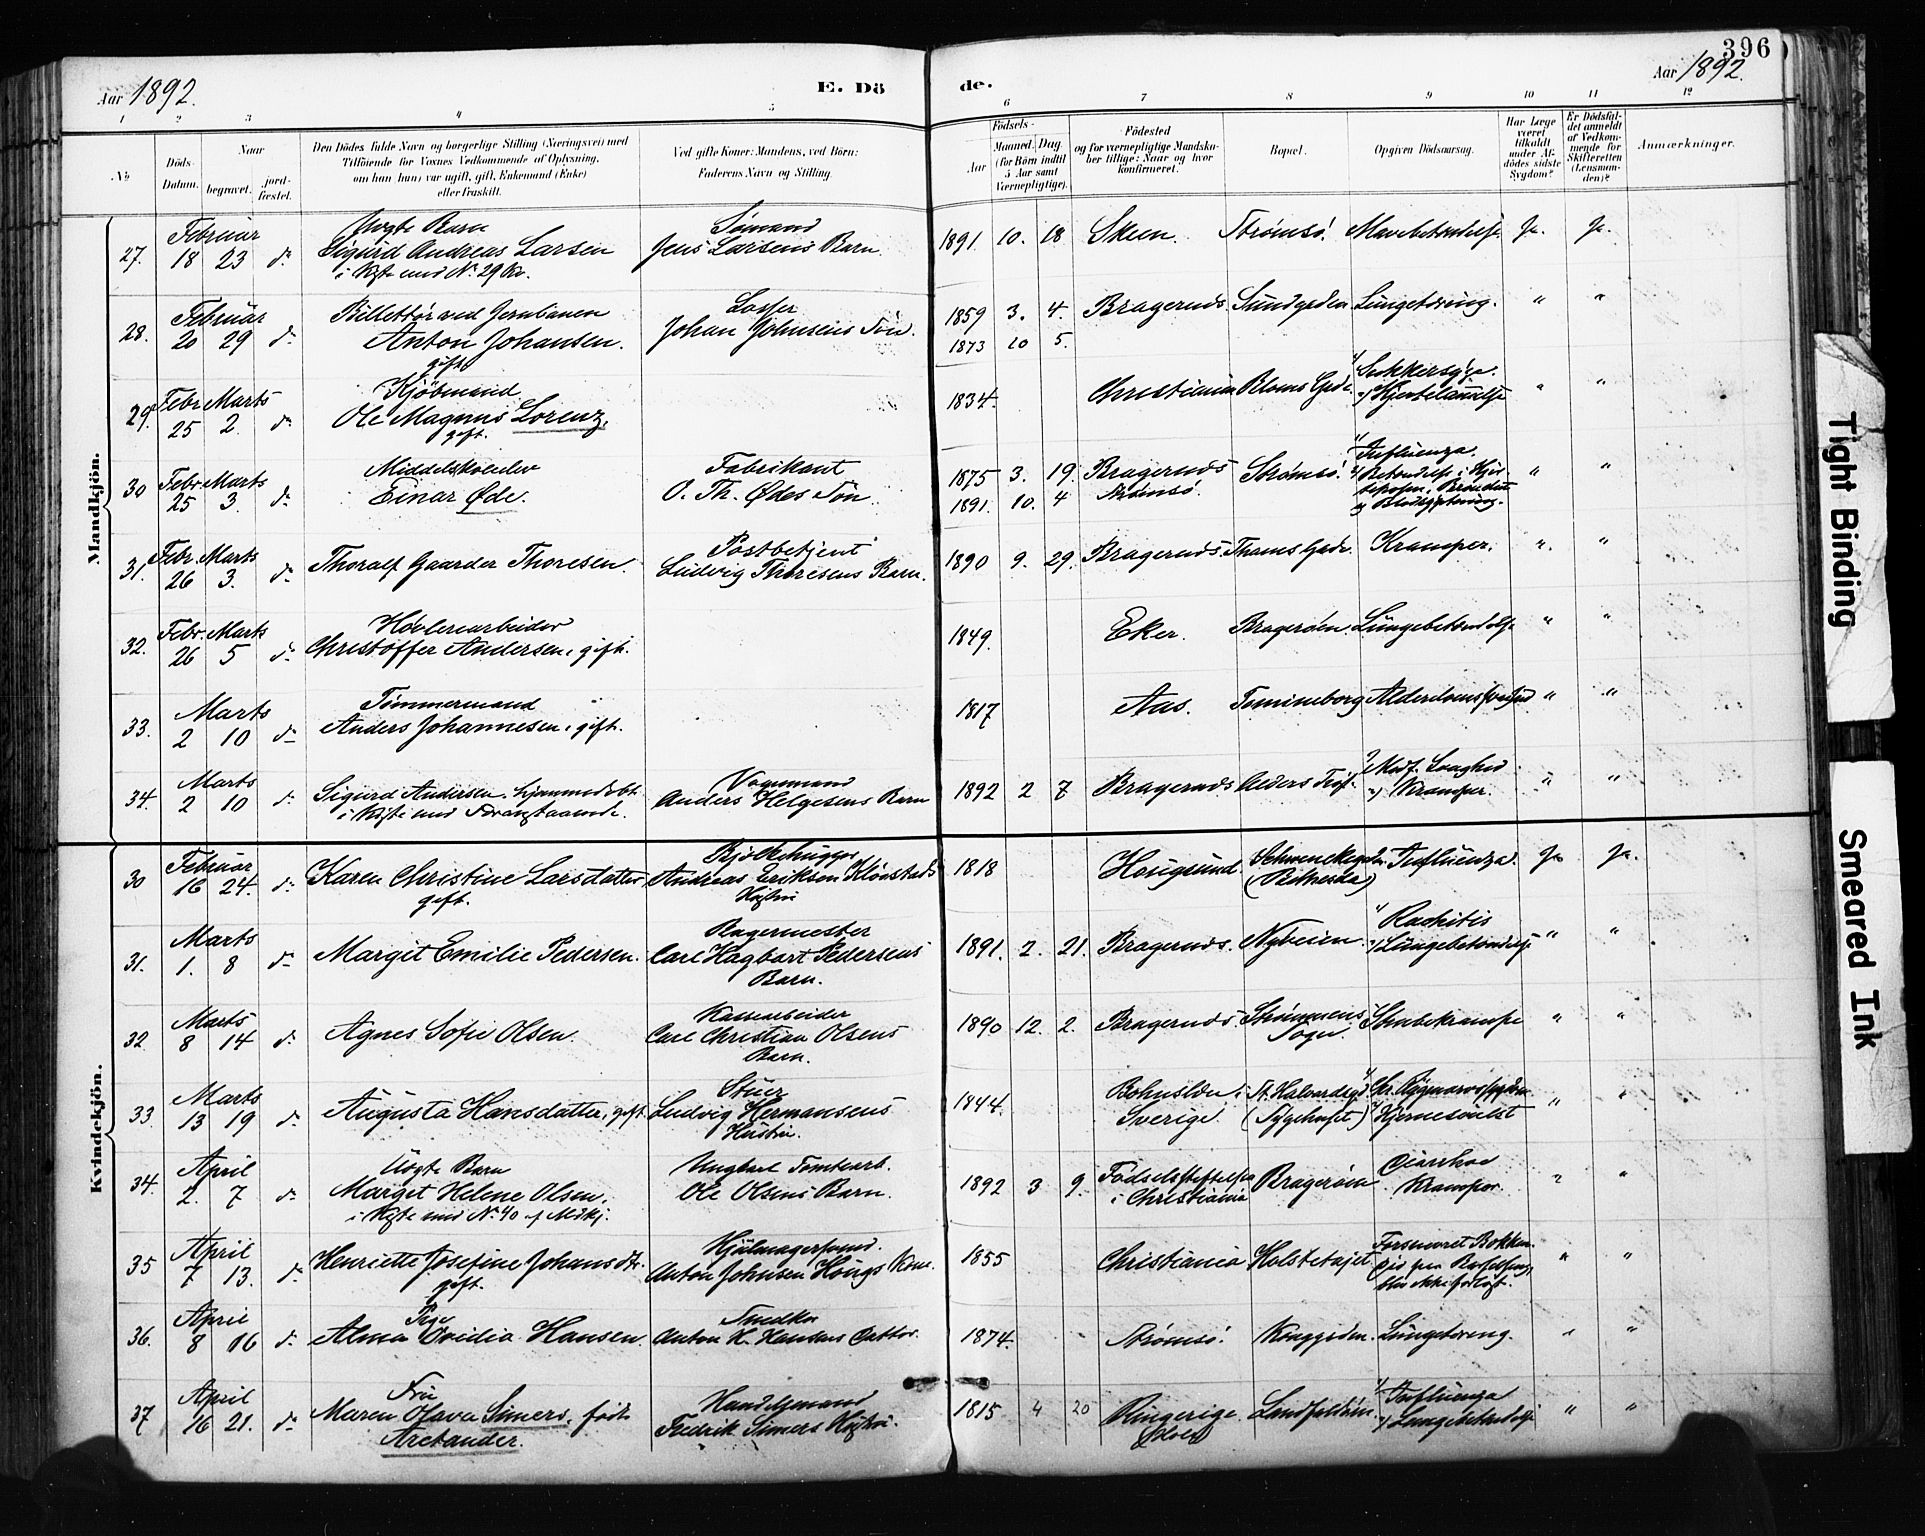 396
Aar 1892.
E. Dö
de.
Aar 1892.
1 2 3 4 5 6 7 8 9 10 11 12
No
Döds-Datum.
Naar
begravet.
jord-fæstet.
Den Dödes fulde Navn og borgerlige Stilling (Næringsvei) med
Tilföiende for Voxnes Vedkommende af Oplysning,
om han (hun) var ugift, gift, Enkemand (Enke)
eller fraskilt.
Ved gifte Koner: Mandens, ved Börn:
Faderens Navn og Stilling.
Födsels-
Aar
Maaned. Dag.
(for Börn indtil
5 Aar samt
Værnepligtige).
Födested
og for værnepligtige Mandska-
ber tillige: Naar og hvor
konfirmeret.
Bopæl.
Opgiven Dödsaarsag.
Har Læge
været
tilkaldt
under Af-
dödes sidste
Sygdom?
Er Dödsfal-
det anmeldt
af Vedkom-
mende for
Skifteretten
(Lensman-
den)?
Anmærkninger.
Mandkjön.
27. Februar 18 23 do
Uægte Barn
Sigurd Andreas Larsen
i Kiste med No 29 Kv.
Sømand
Jens Larsens Barn.
1891. 10. 18 Skeen. Strømsö. Mavebetændelse Ja. Ja.
28. Februar 20 29 do
Billettör ved Jernbanen
Anton Johansen.
gift
Losser
Johan Johnsens Sön.
1859 3. 4. Bragernæs Sundgaden Lungetæring. " "
1873 10 5.
29. Febr. 25 Marts 2. do
Kjöbmand
Ole Magnus Lorenz,
gift.
1834. Christiania Bloms Gade. Sukkersyge.
Hjertelammelse " "
30 Febr. 25 Marts 3. do
Middelskoleelev
Einar Øde.
Fabrikant
O. Th. Ødes Sön
1875 3. 19. Bragernæs Strømsö. Influenza. " "
1891. 10. 4 Strömsö.
31. Febr. 26 Marts 3. do
Thoralf Gaarder Thoresen.
Postbetjent
Ludvig Thoresens Barn.
1890 9. 29. Bragernæs Thams Gade. Kramper. " "
32. Febr. 26 Marts 5 do
Høvleriarbeider
Christoffer Andersen, gift.
1849. Eker. Bragerøen. Lungebetændelse " "
33. Marts 2 10 do
Tömmermand
Anders Johannesen, gift.
1817 Aas. Tomineborg Alderdomssvaghed " "
34. Marts 2 10 do
Sigurd Andersen. hjemmedøbt
i Kiste med
Vognmand
Anders Helgesens Barn
1892 2 7 Bragernæs Medf. Svaghed
Kramper. " "
Kvindekjön.
30 Februar 16 24. do
Karen Christine Larsdatter,
gift.
Bjelkehugger
Andreas Eriksen Klönstads
Hustru
1818 Hougsund. Influenza. Ja Ja.
31. Marts 1. 8 do
Margit Emilie Pedersen.
Bagermester
Carl Hagbart Pedersens
Barn.
1891. 2. 21. Bragernæs. Nybeien. Rachitis
Lungebetændelse " "
32. Marts 8 14 do
Agnes Sofie Olsen.
Kassearbeider
Carl Christian Olsens
Barn.
1890 12. 2. Bragernæs. Strømmens
Sogn. Strubekrampe " "
33. Marts 13 19 do
Augusta Hansdatter, gift.
Stuer
Ludvig Hermansens
Hustru.
1844. Bohuslän i
Sverige. St. Halvardsgd.
(Sygehuset) Cr. Rygmarvssygdom
Hjernesvulst " "
34. April 2. 7 do
Uægte Barn
Marget Helene Olsen.
i Kiste med No 40 af Mdkj.
Ungkarl Tomtearb.
Ole Olsens Barn.
1892 3 9. Fødselsstiftelsen
i Christiania Bragerøen Diarrhoe
Kramper. " "
35 April 7 13. do
Henriette Josefine Johansdtr.
gift.
Anton Johnsen Hougs Kone.
1855 Christiania Holstetajet. Forsnævret Bækken. " "
36. April 8 16 do
Pige
Alma Ovidia Hansen.
Snedker
Anton H. Hansens Datter
1874. Strømsö. Konggaden. Lungetæring. " "
37 April 16 21. do
Fru
Maren Olava Simers, født
Arctander.
Handelsmand
Fredrik Simers Hustru.
1815 4 20 Ringerige
(Hole) Landfaldöen Influenza
Lungebetændelse " "
Tight Binding
Smeared Ink